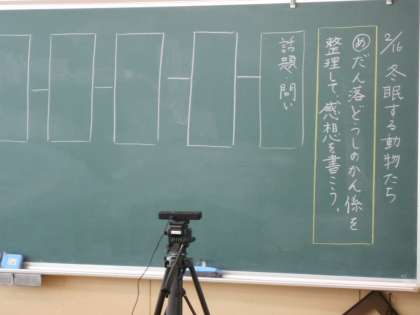 2/16 冬眠する動物たち
めだん落どうしのかん係を
整理して、感想を書こう。
話題・問い